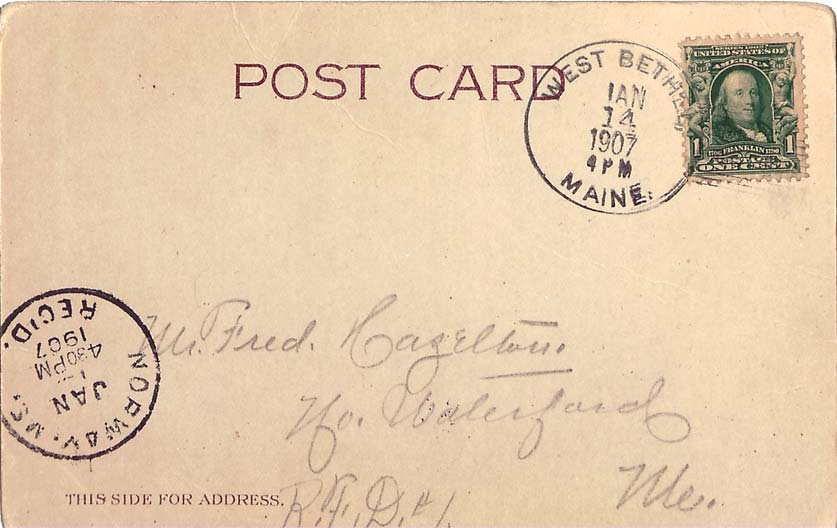 POST CARD
WEST BETHEL
JAN
14
1907
4 PM
MAINE.
SERIES 1902
UNITED STATES OF
AMERICA
1 1706 FRANKLIN 1790 1
POSTAGE
ONE CENT
NORWAY. ME.
JAN
430PM
1907
REC'D.
Mr. Fred. Hazelton.
No. Waterford
Me.
R.F.D. #1.
THIS SIDE FOR ADDRESS.